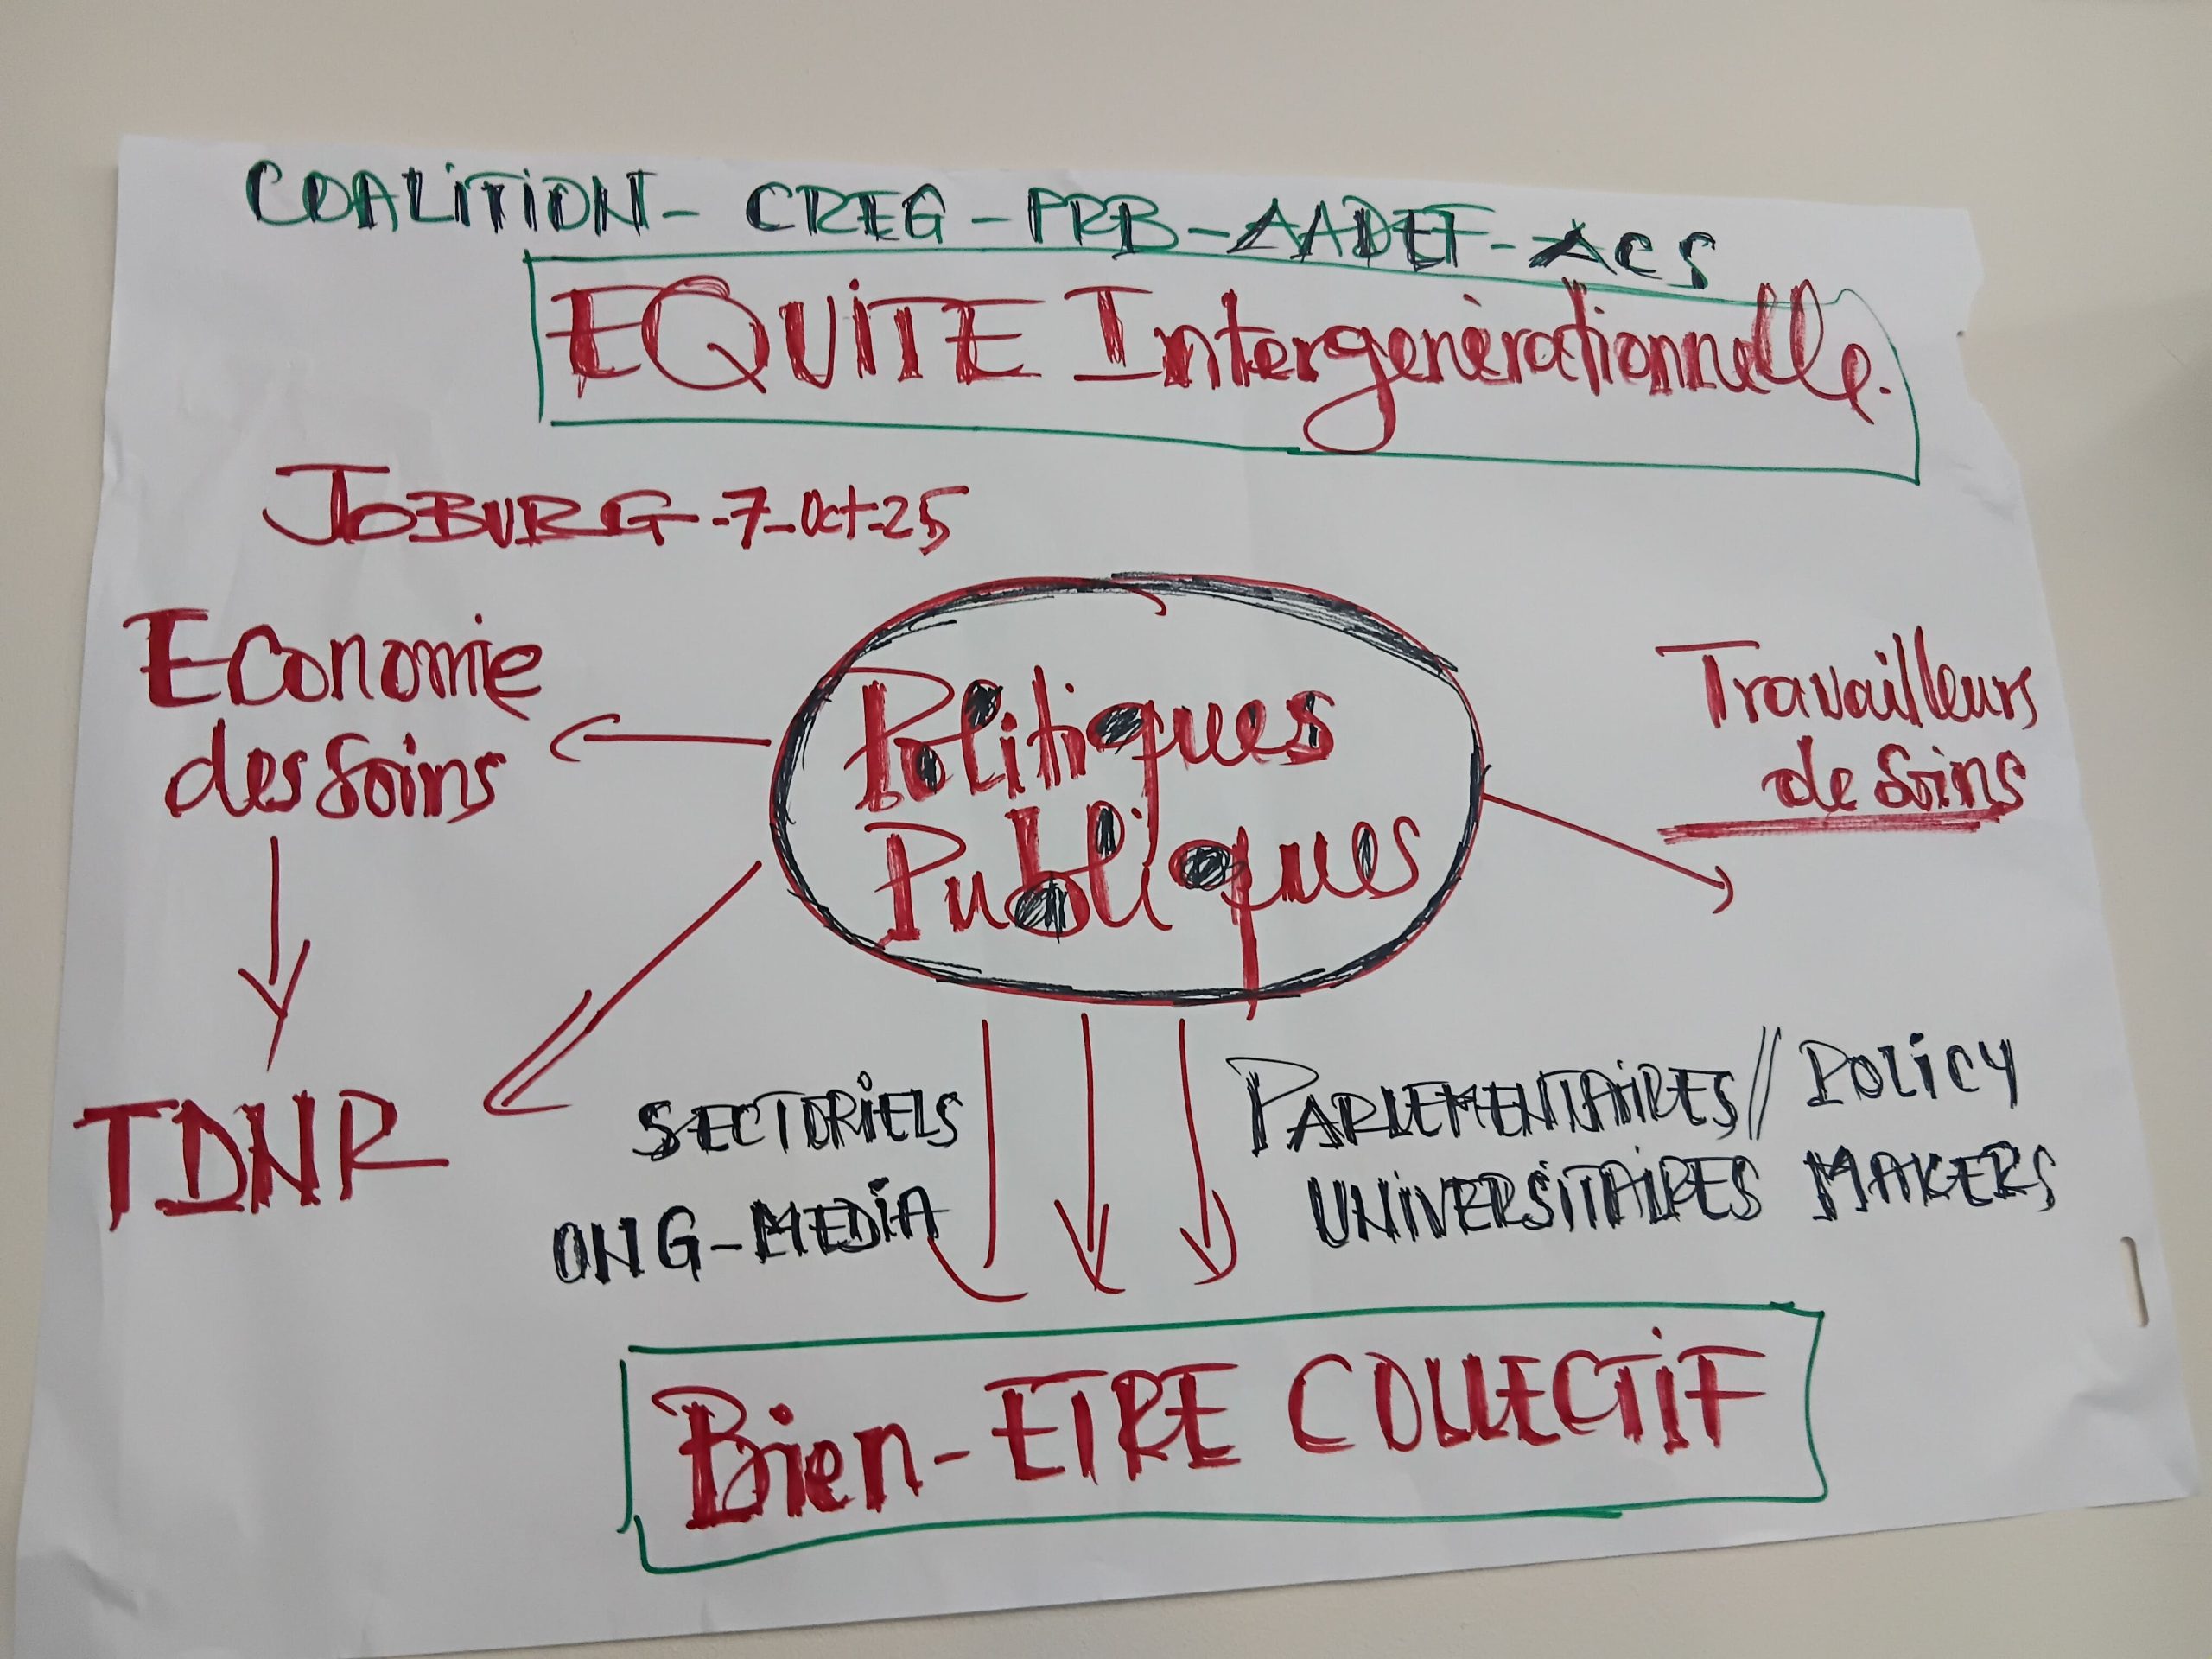 COALiTiON - CREG - PRB - AADEF - ACS
EQUiTE Intergenèrationnelle.
JOBURG - 7 - Oct - 25
Economie
des Soins
Politiques
Publiques
Travailleurs
de Soins
TDNR
SECTORiELS
ONG - MEDiA
PARLEMENTAiRES // POLiCY
UNiVERSiTAiRES MAKERS
Bien - ETRE COLLECTiF